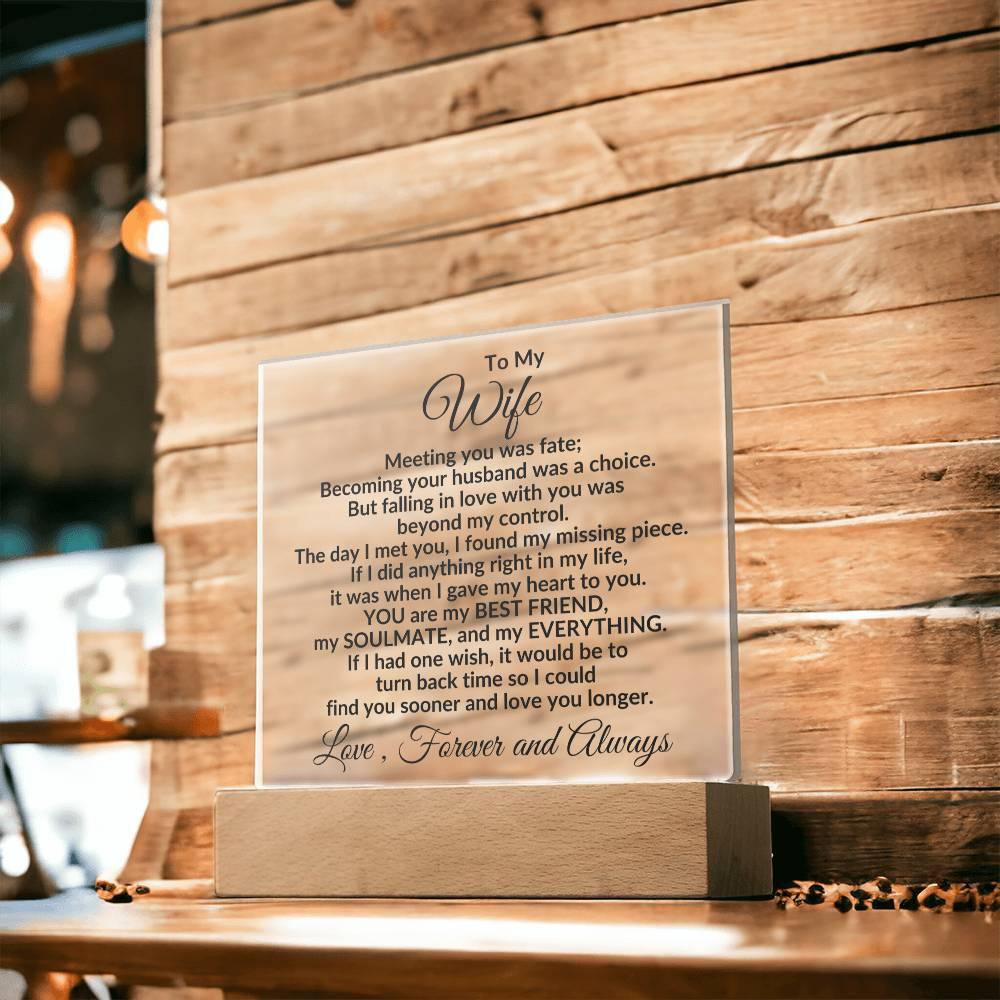 To My
Wife
Meeting you was fate;
Becoming your husband was a choice.
But falling in love with you was
beyond my control.
The day I met you, I found my missing piece.
If I did anything right in my life,
it was when I gave my heart to you.
YOU are my BEST FRIEND,
my SOULMATE, and my EVERYTHING.
If I had one wish, it would be to
turn back time so I could
find you sooner and love you longer.
Love , Forever and Always